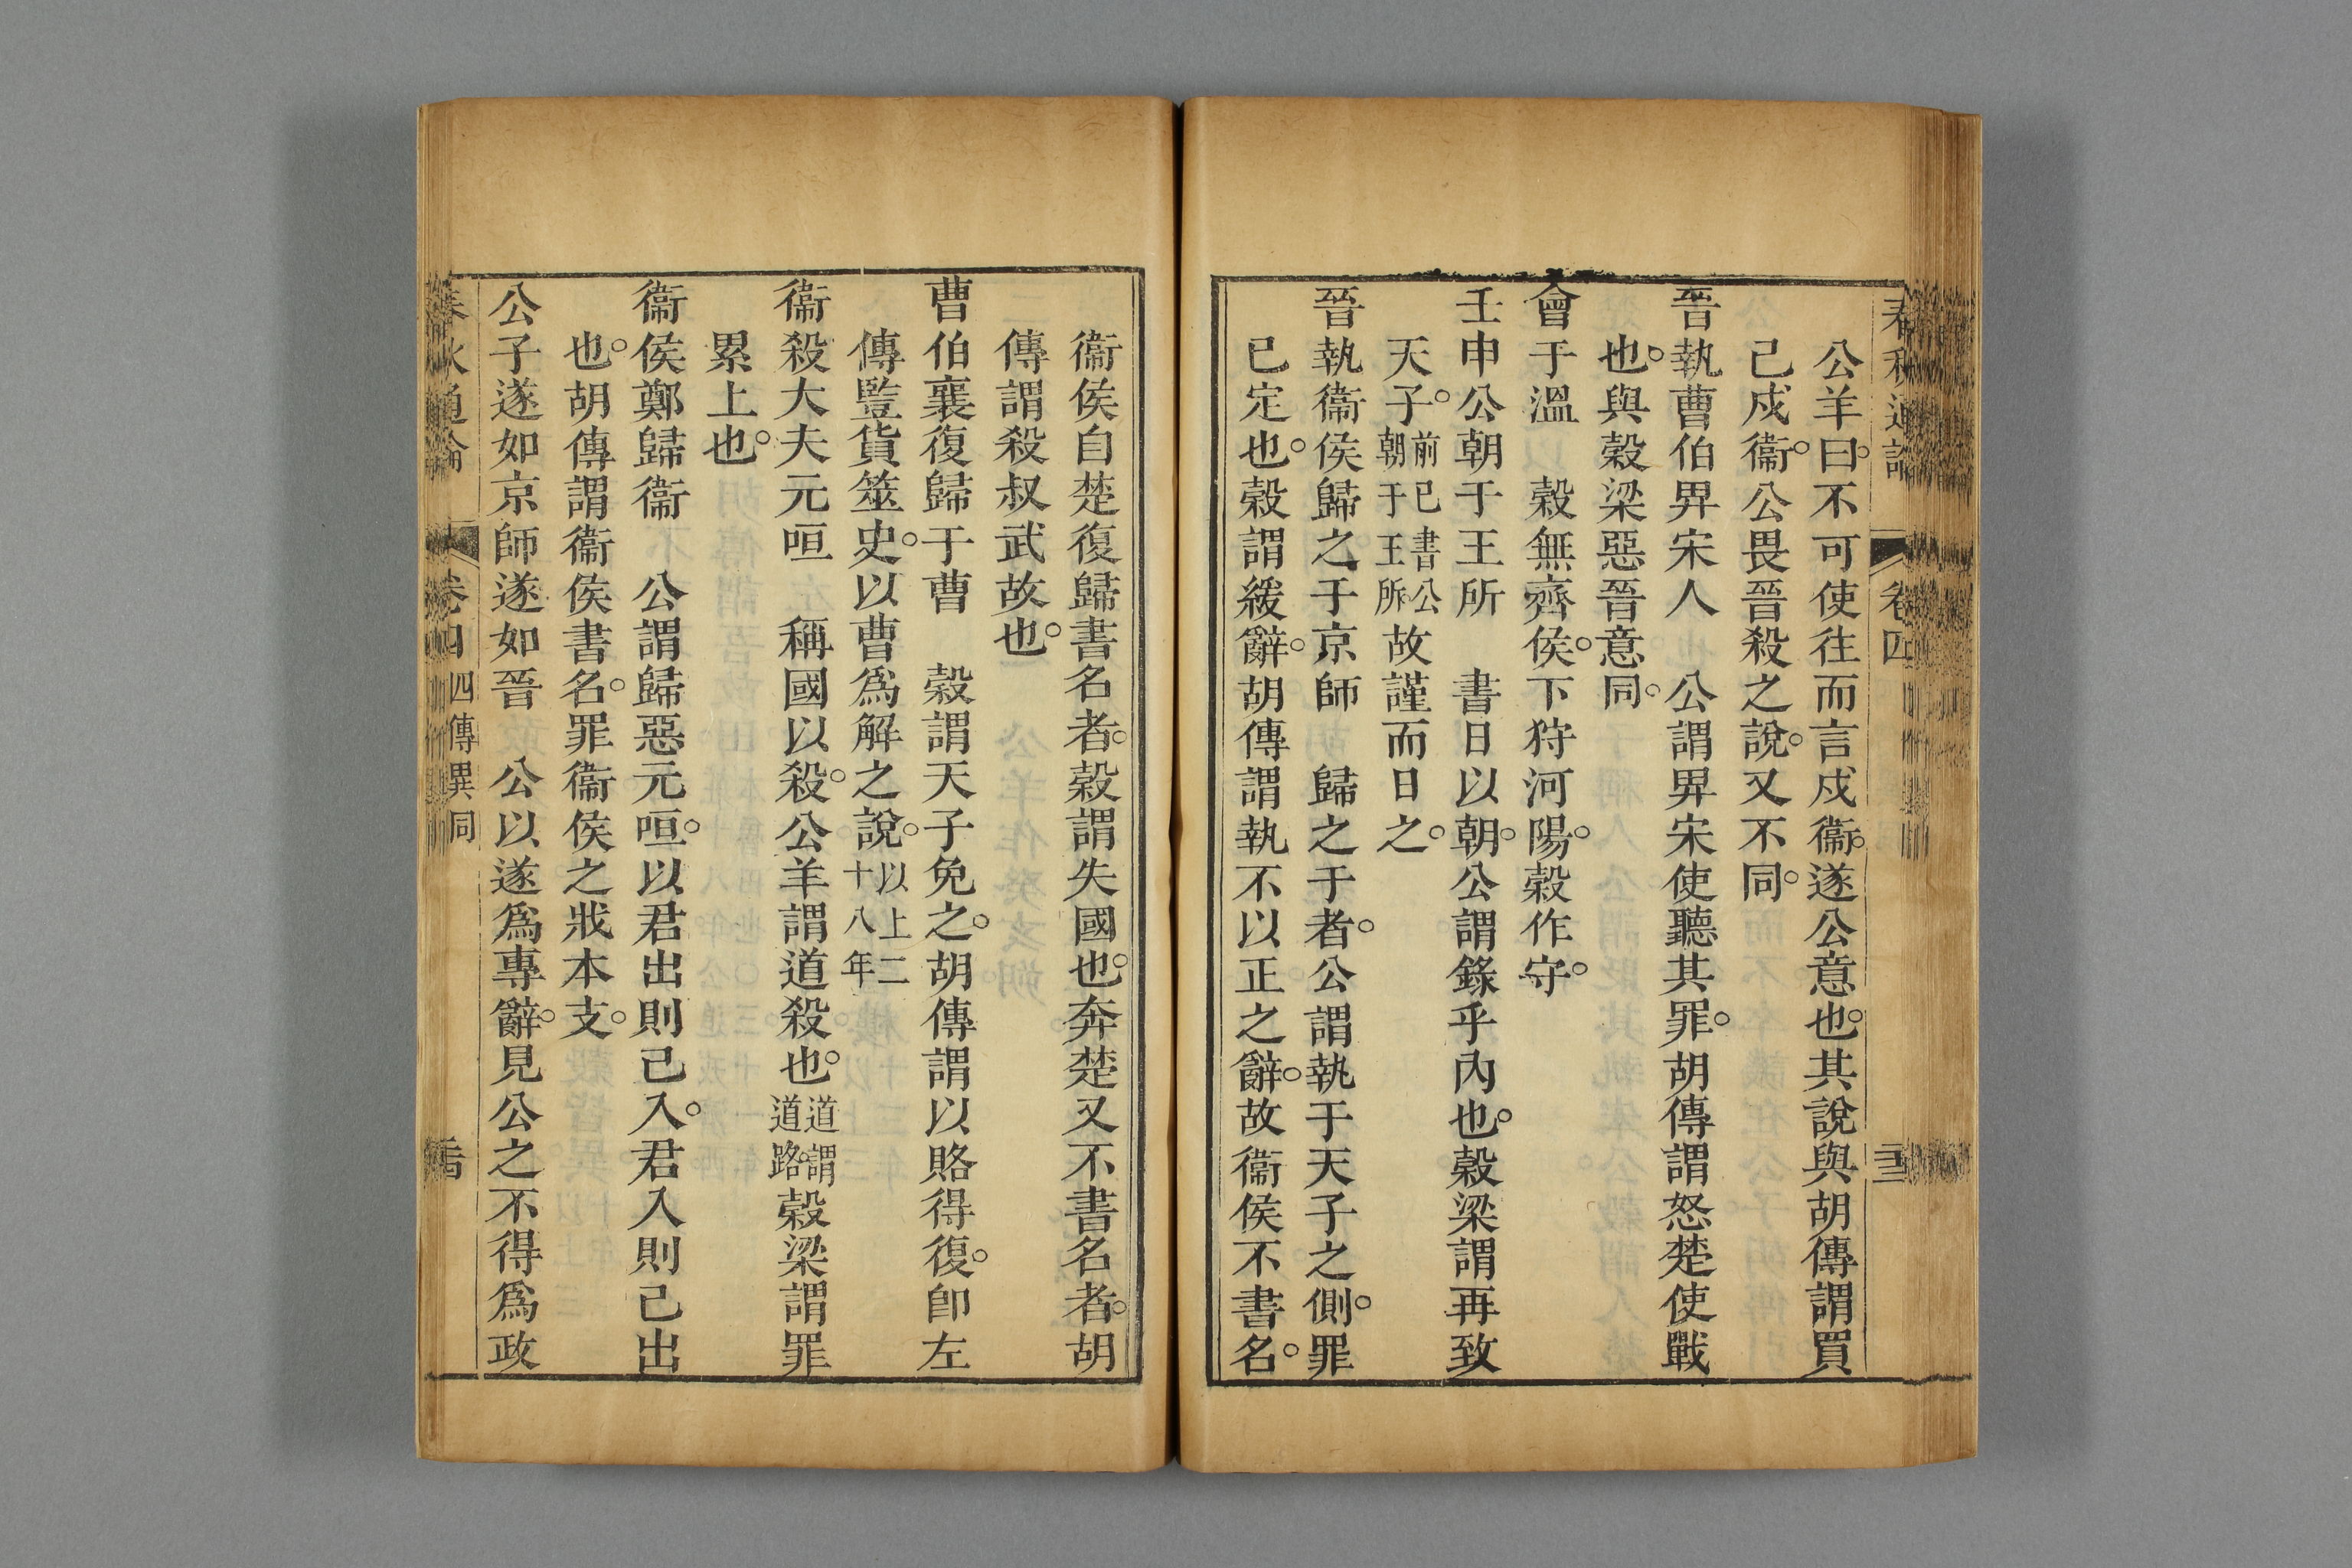 春秋通論
卷四
公羊曰。不可使往而言戍衞。遂公意也。其說與胡傳謂買
已戍衞。公畏晉殺之說。又不同。
晉執曹伯畀宋人　公謂畀宋使聽其罪。胡傳謂怒楚使戰
也。與穀梁惡晉意同。
會于溫　穀無齊侯。下狩河陽。穀作守。
壬申公朝于王所　書日以朝。公謂錄乎內也。穀梁謂再致
天子。前已書公朝于王所故謹而日之。
晉執衞侯歸之于京師　歸之于者。公謂執于天子之側。罪
已定也。穀謂緩辭。胡傳謂執不以正之辭。故衞侯不書名。
衞侯自楚復歸書名者。穀謂失國也。奔楚又不書名者。胡
傳謂殺叔武故也。
曹伯襄復歸于曹　穀謂天子免之。胡傳謂以賂得復。卽左
傳豎貨筮史。以曹爲解之說。以上二十八年
衞殺大夫元咺　稱國以殺。公羊謂道殺也。道謂道路。穀梁謂罪
累上也。
衞侯鄭歸衞　公謂歸惡元咺。以君出則己入。君入則己出
也。胡傳謂衞侯書名。罪衞侯之戕本支。
公子遂如京師遂如晉　公以遂爲專辭。見公之不得爲政
春秋通論
卷四
四傳異同